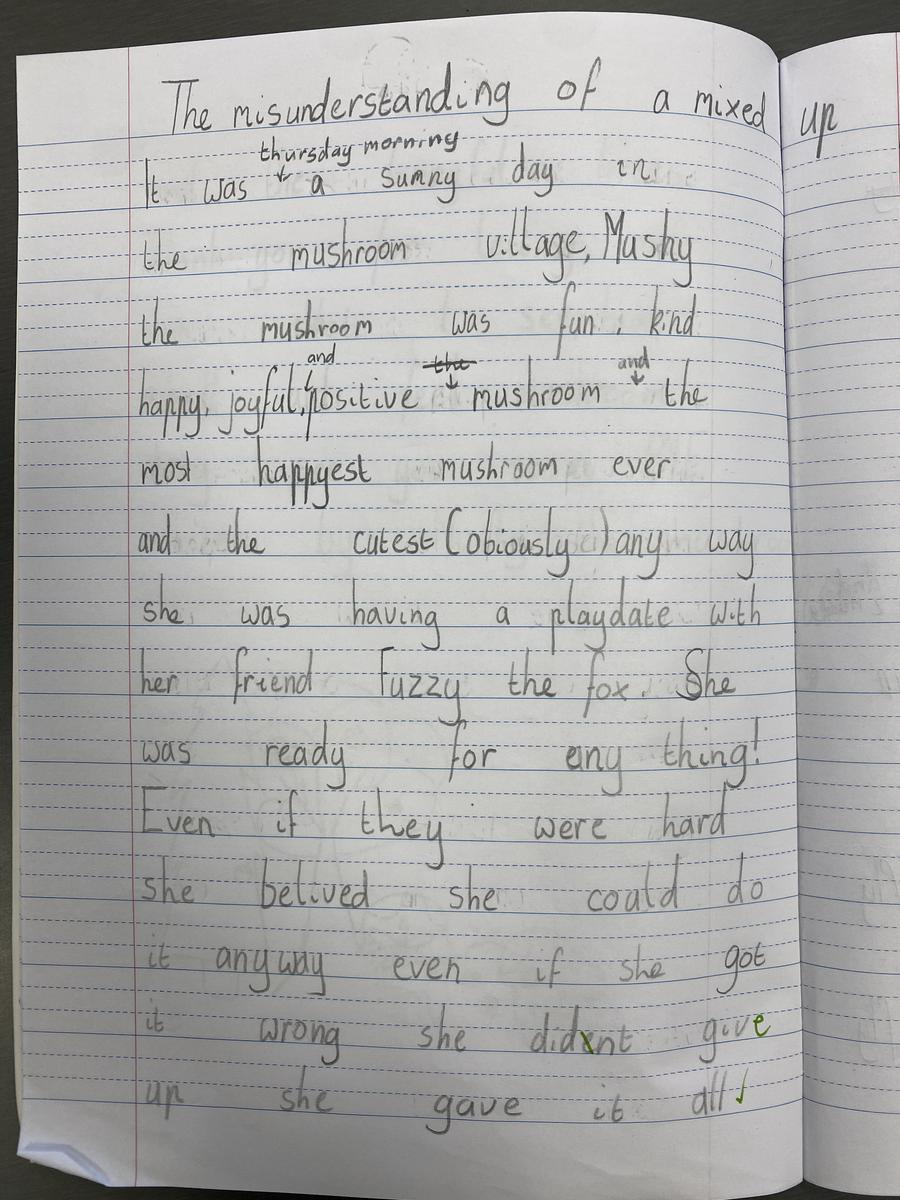 The misunderstanding of a mixed up
thursday morning
It was a sunny day in
the mushroom village, Mushy
the mushroom was fun, kind
and the and
happy, joyful, positive mushroom the
most happyest mushroom ever
and the cutest (obiously) any way
she was having a playdate with
her friend Fuzzy the fox. She
was ready for any thing!
Even if they were hard
she belived she could do
it anyway even if she got
it wrong she didnt give
up she gave it all